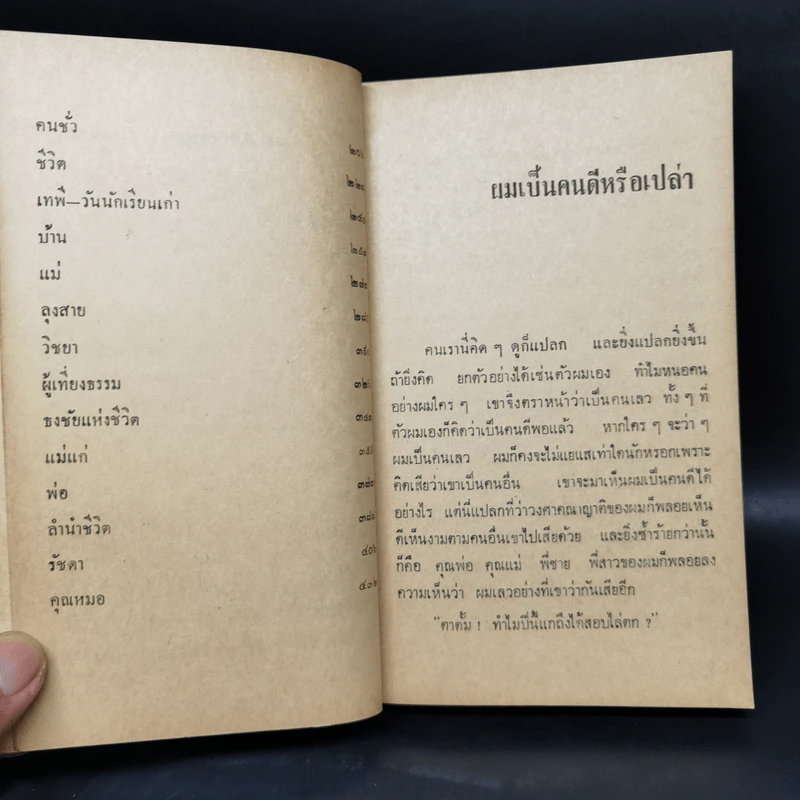 คนชั่ว
ชีวิต
เทพี—วันนักเรียนเก่า
บ้าน
แม่
ลุงสาย
วิชยา
ผู้เที่ยงธรรม
ธงชัยแห่งชีวิต
แม่แก่
พ่อ
ลำนำชีวิต
รัชดา
คุณหมอ
ผมเป็นคนดีหรือเปล่า
คนเรานี่คิด ๆ ดูก็แปลก และยิ่งแปลกยิ่งขึ้น
ถ้ายิ่งคิด ยกตัวอย่างได้เช่นตัวผมเอง ทำไมหนอคน
อย่างผมใคร ๆ เขาจึงตราหน้าว่าเป็นคนเลว ทั้ง ๆ ที่
ตัวผมเองก็คิดว่าเป็นคนดีพอแล้ว หากใคร ๆ จะว่า ๆ
ผมเป็นคนเลว ผมก็คงจะไม่แยแสเท่าใดนักหรอกเพราะ
คิดเสียว่าเขาเป็นคนอื่น เขาจะมาเห็นผมเป็นคนดีได้
อย่างไร แต่นี่แปลกที่ว่าวงศาคณาญาติของผมก็พลอยเห็น
ดีเห็นงามตามคนอื่นเขาไปเสียด้วย และยิ่งซ้ำร้ายกว่านั้น
ก็คือ คุณพ่อ คุณแม่ พี่ชาย พี่สาวของผมก็พลอยลง
ความเห็นว่า ผมเลวอย่างที่เขาว่ากันเสียอีก
“ตาตั้ม ! ทำไมปีนี้แกถึงได้สอบไล่ตก ?”